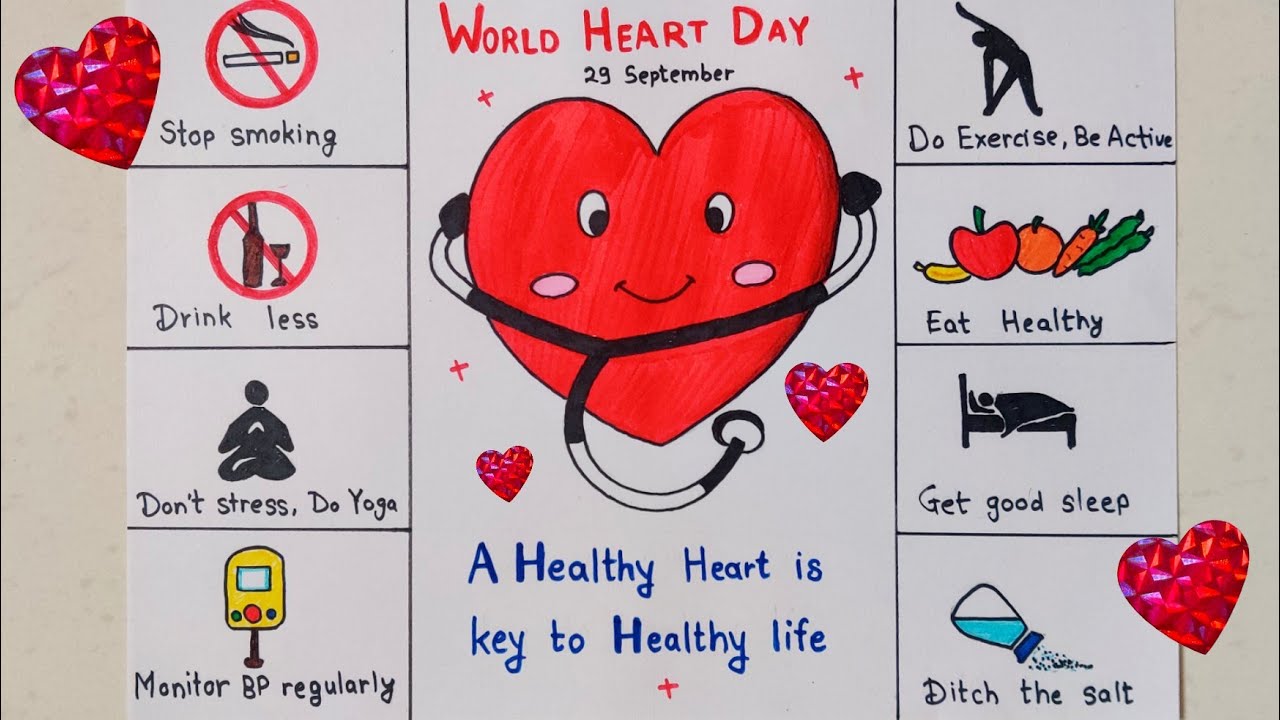 WORLD HEART DAY
29 September
Stop smoking
Drink less
Don't stress, Do Yoga
Monitor BP regularly
Do Exercise, Be Active
Eat Healthy
Get good sleep
Ditch the salt
A Healthy Heart is
key to Healthy life